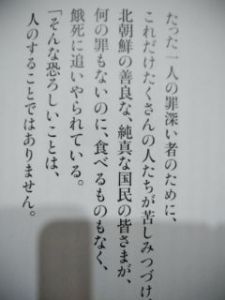 たった一人の罪深い者のために、
これだけたくさんの人たちが苦しみつづけ
北朝鮮の善良な、純真な国民の皆さまが、
何の罪もないのに、食べるものもなく、
餓死に追いやられている。
「そんな恐ろしいことは、
人のすることではありません。